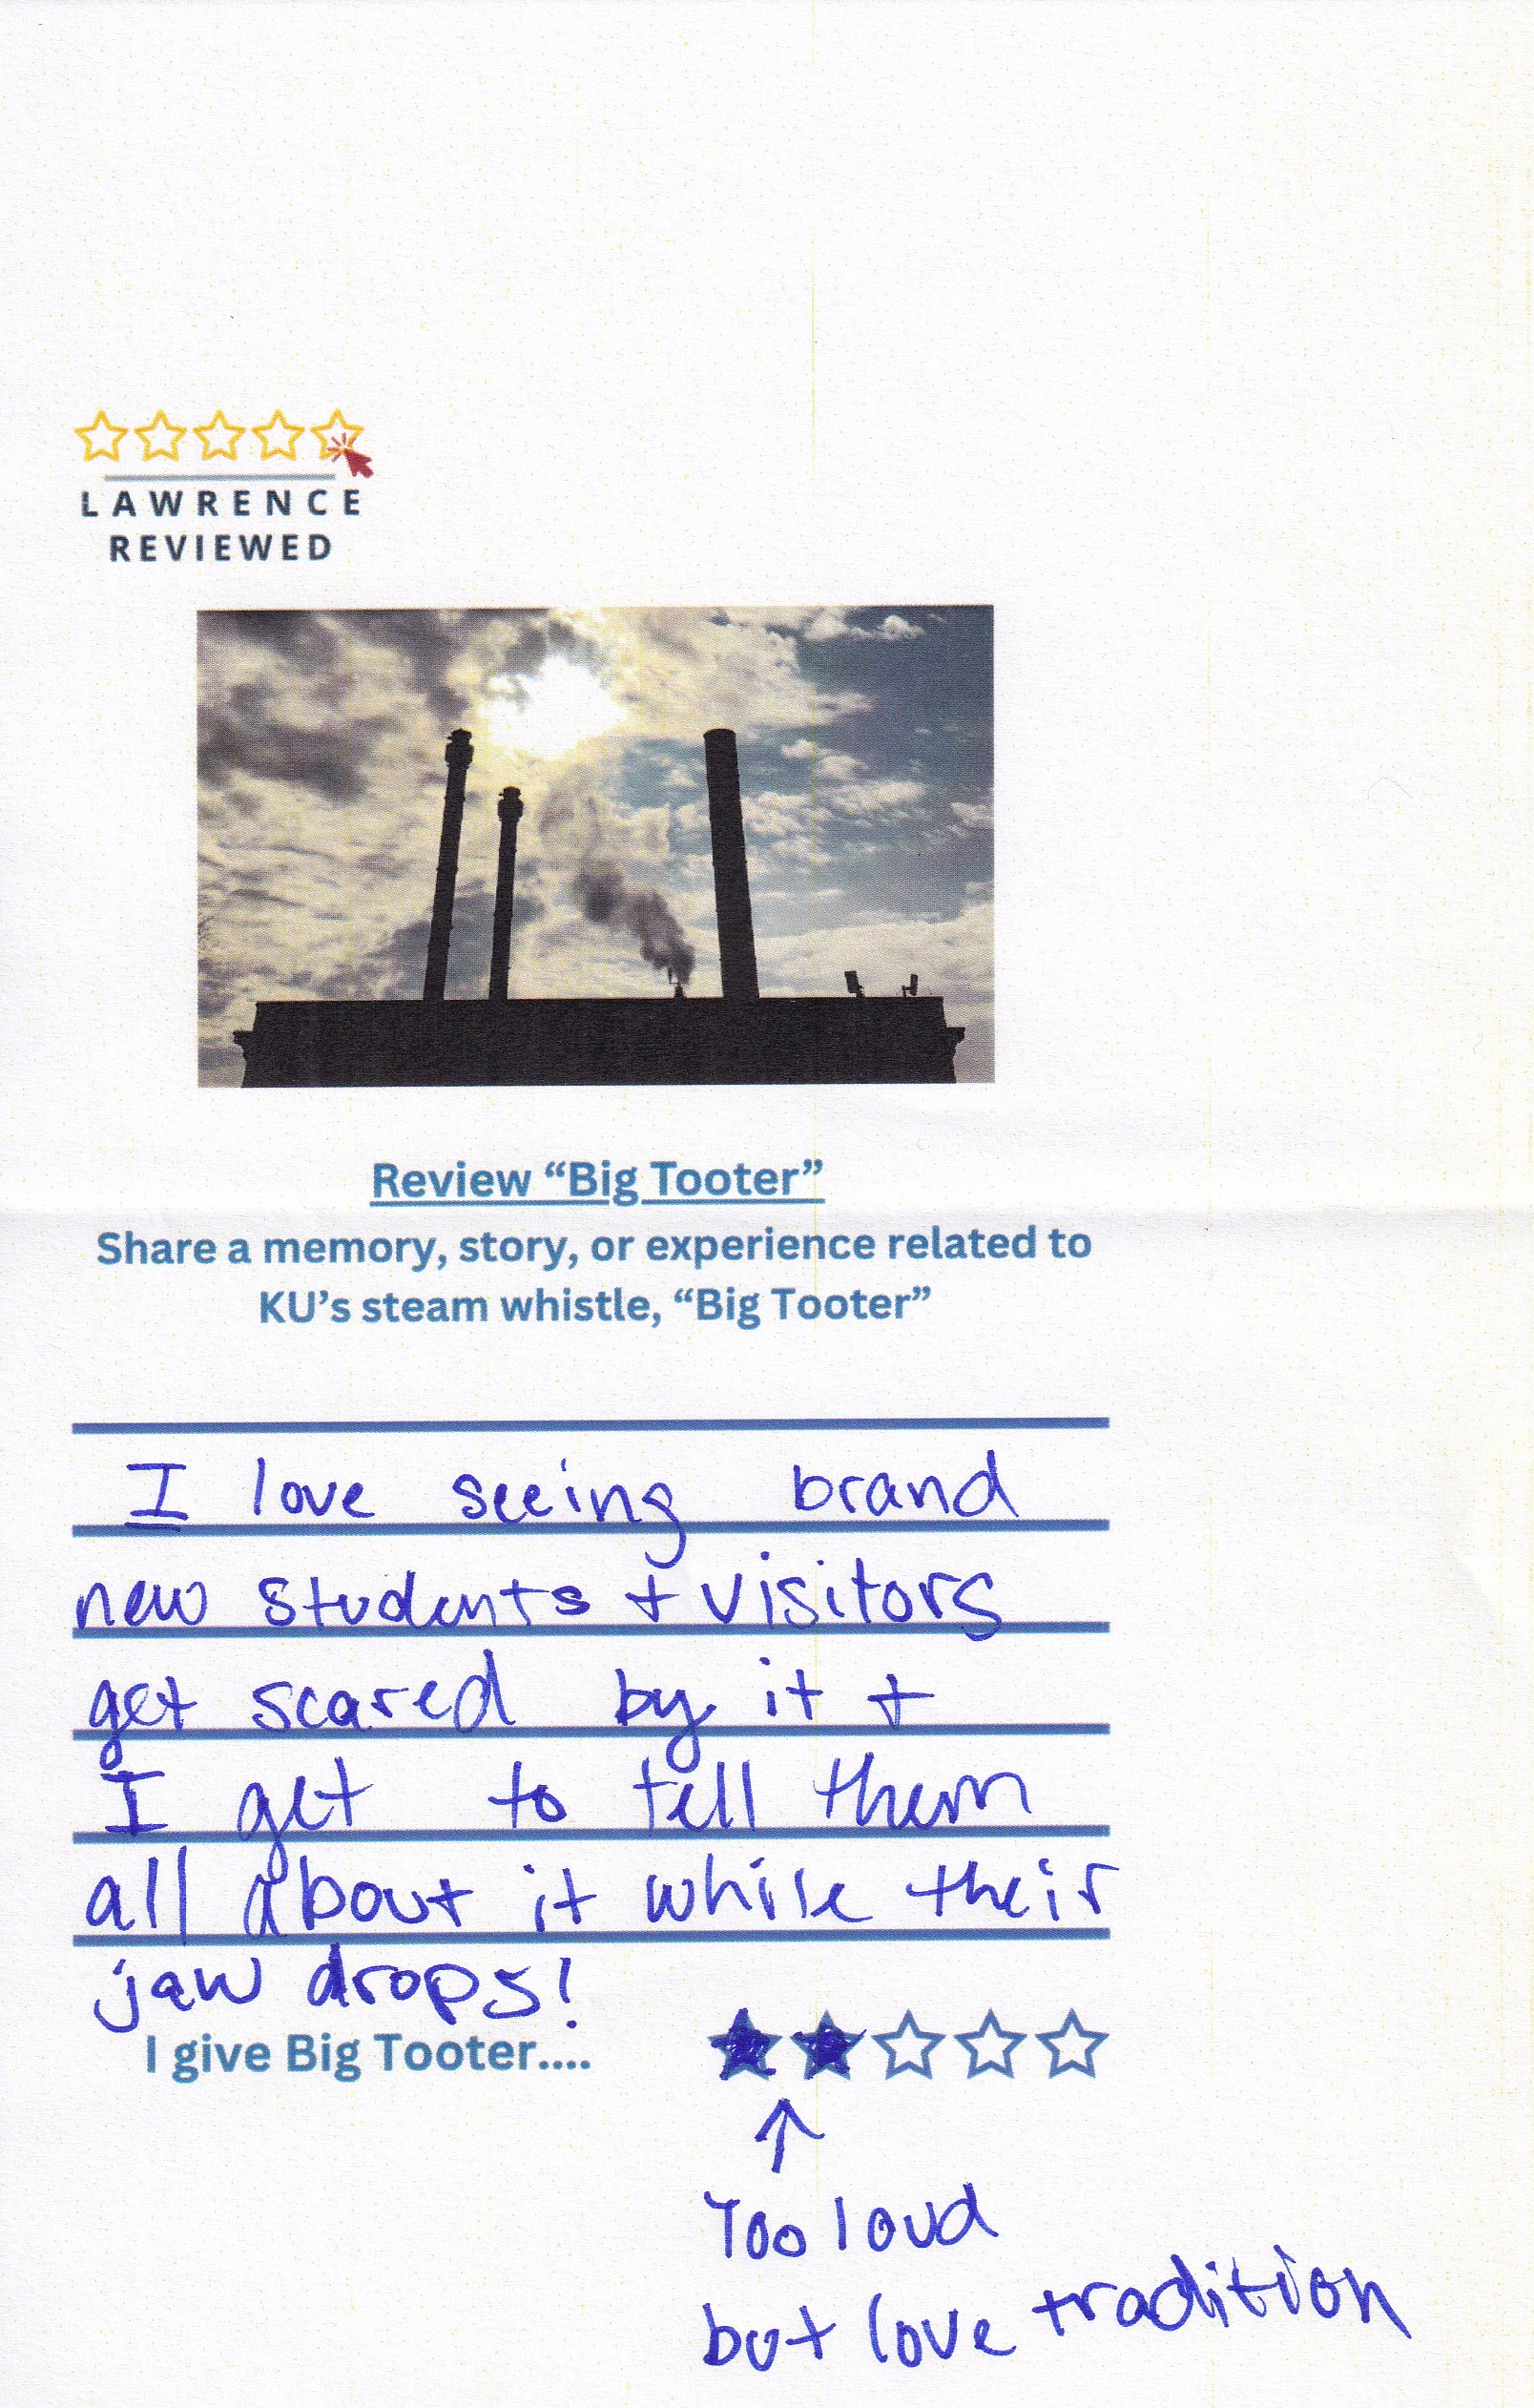 LAWRENCE
REVIEWED
Review “Big Tooter”
Share a memory, story, or experience related to
KU’s steam whistle, “Big Tooter”
I love seeing brand
new students + visitors
get scared by it +
I get to tell them
all about it while their
jaw drops!
I give Big Tooter....
Too loud
but love tradition